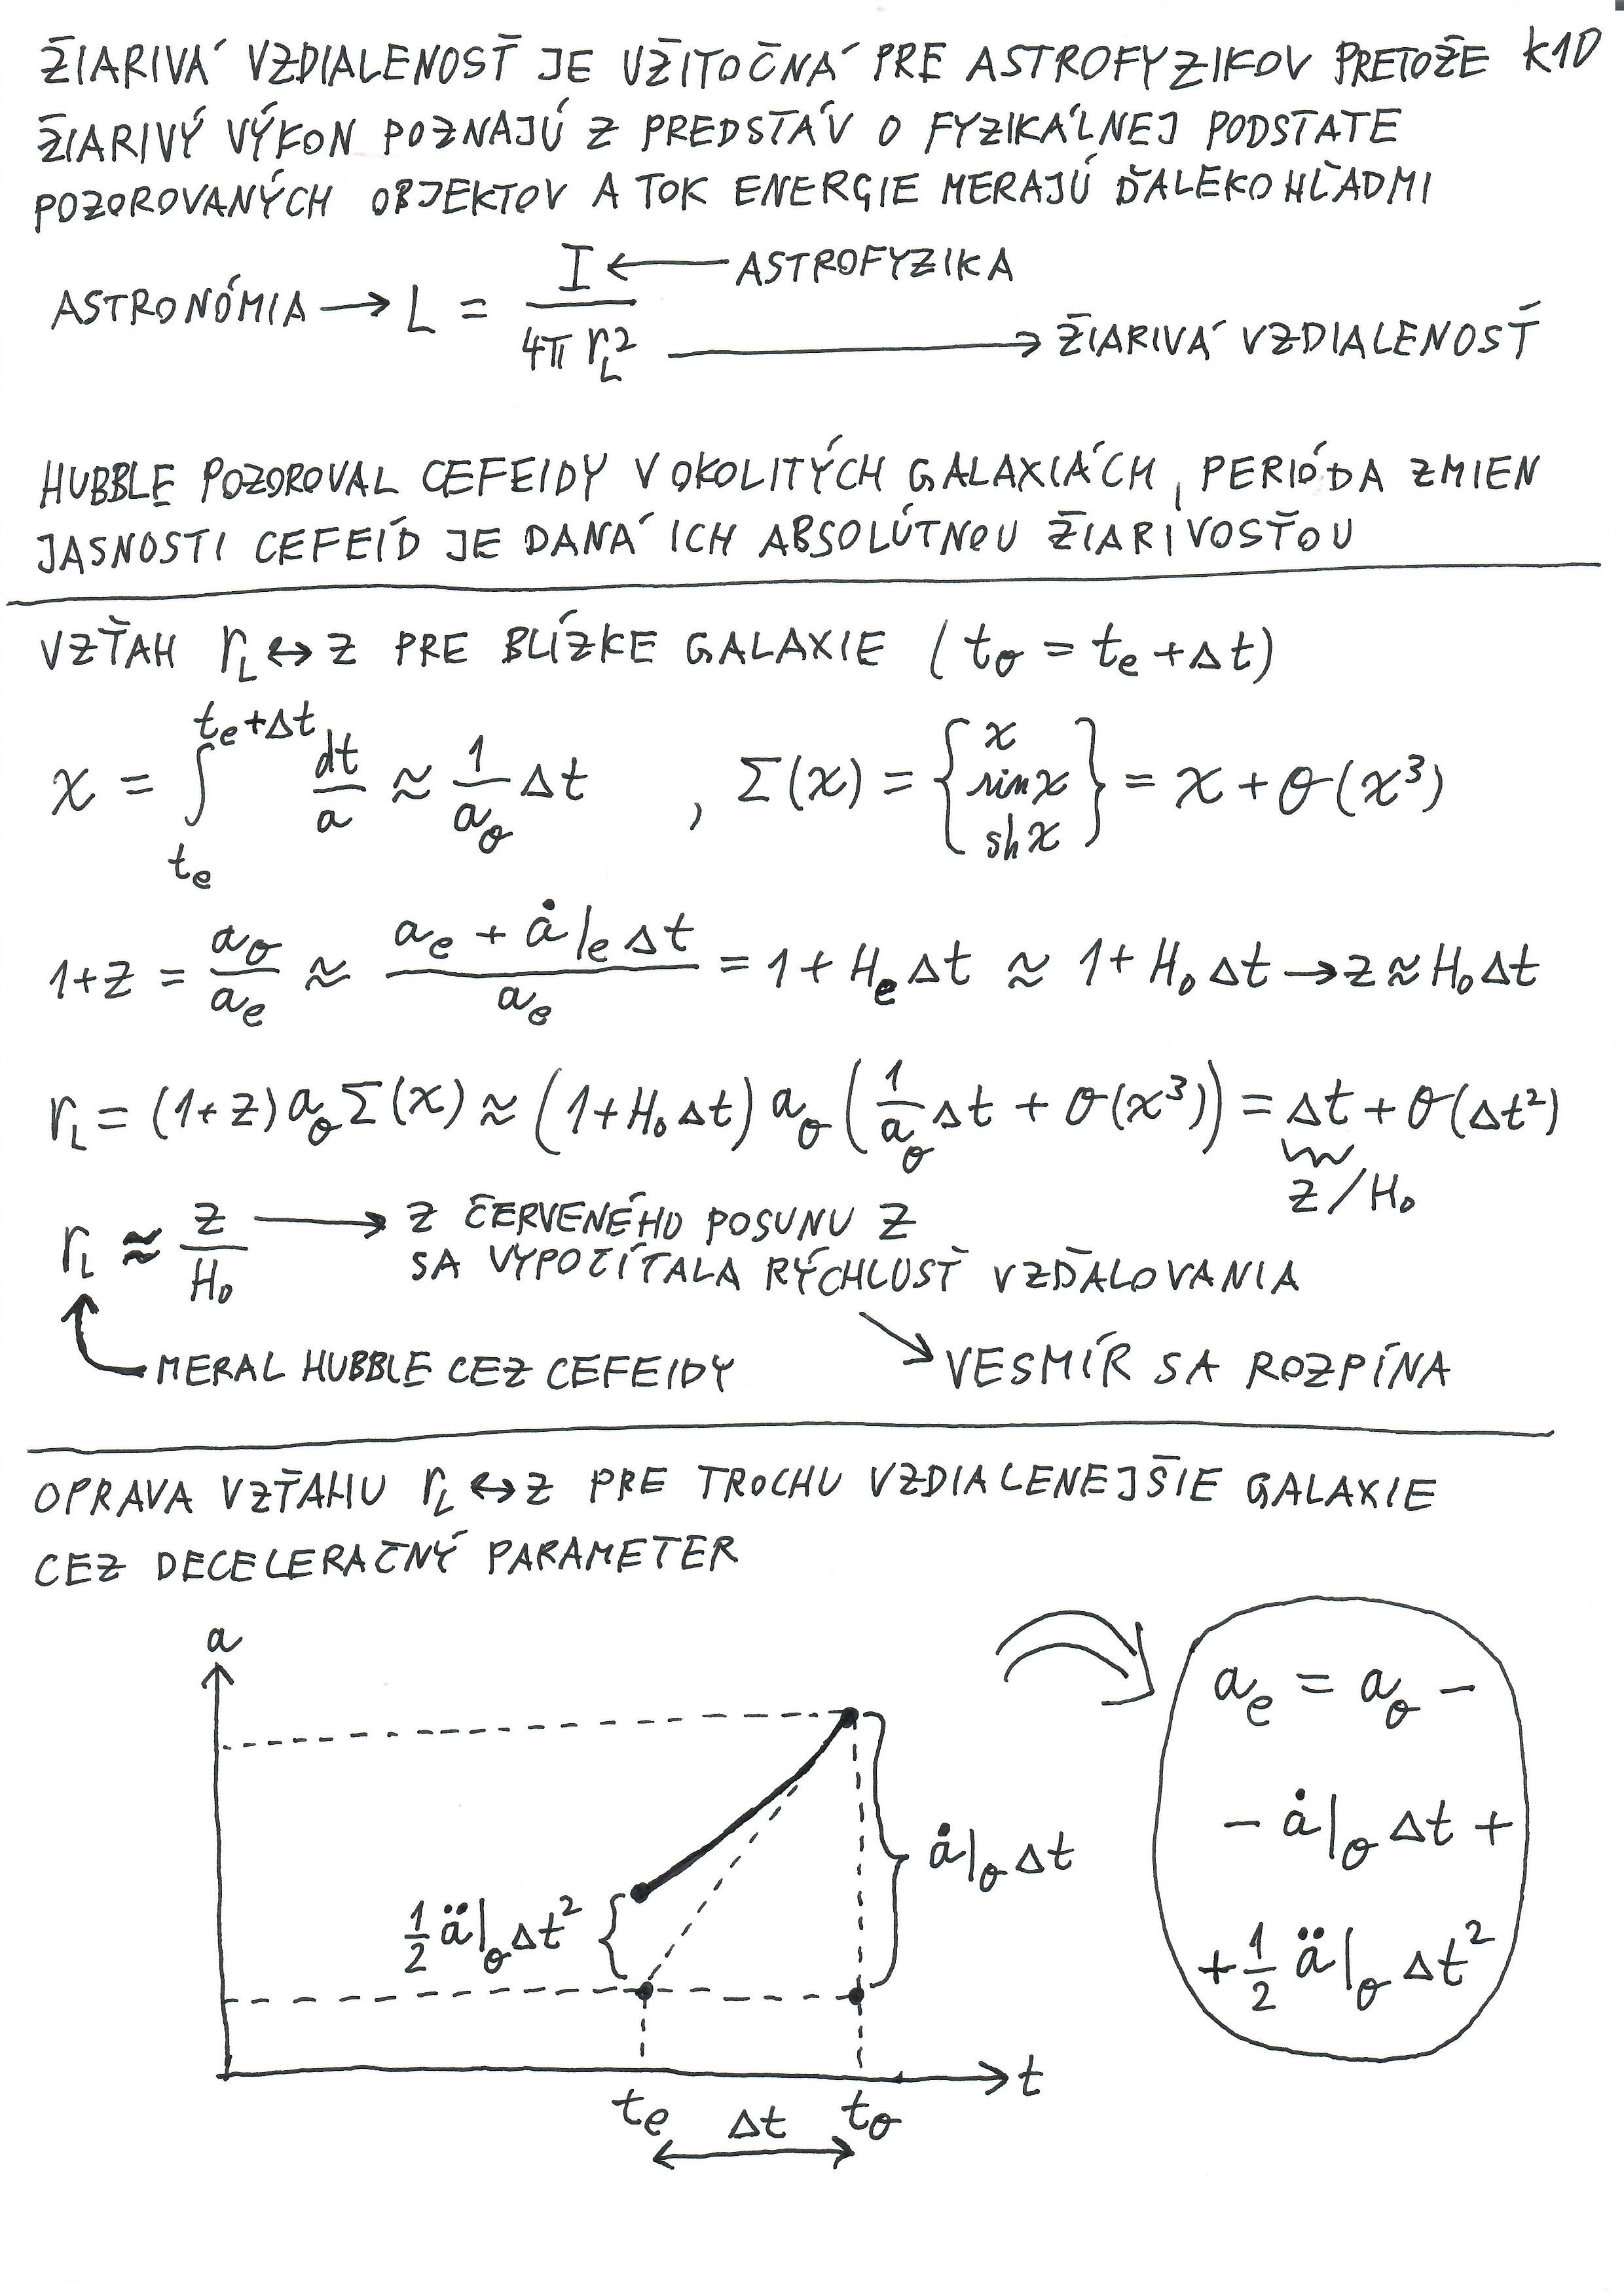 ŽIARIVÁ VZDIALENOSŤ JE UŽITOČNÁ PRE ASTROFYZIKOV PRETOŽE K10
ŽIARIVÝ VÝKON POZNAJÚ Z PREDSTÁV O FYZIKÁLNEJ PODSTATE
POZOROVANÝCH OBJEKTOV A TOK ENERGIE MERAJÚ ĎALEKOHĽADMI
ASTRONÓMIA → L = I / 4π r_L² ← ASTROFYZIKA
→ ŽIARIVÁ VZDIALENOSŤ
HUBBLE POZOROVAL CEFEIDY V OKOLITÝCH GALAXIÁCH, PERIÓDA ZMIEN
JASNOSTI CEFEÍD JE DANÁ ICH ABSOLÚTNOU ŽIARIVOSŤOU
VZŤAH r_L ↔ z PRE BLÍZKE GALAXIE (t_o = t_e + Δt)
χ = ∫_{t_e}^{t_e+Δt} dt/a ≈ 1/a_o Δt , Σ(χ) = { χ sin χ sh χ } = χ + O(χ³)
1+z = a_o/a_e ≈ (a_e + ȧ|_e Δt)/a_e = 1 + H_e Δt ≈ 1 + H_0 Δt → z ≈ H_0 Δt
r_L = (1+z) a_o Σ(χ) ≈ (1+H_0 Δt) a_o (1/a_o Δt + O(χ³)) = Δt + O(Δt²)
z/H_0
r_L ≈ z/H_0 → Z ČERVENÉHO POSUNU Z
SA VYPOČÍTALA RÝCHLOSŤ VZĎALOVANIA
MERAL HUBBLE CEZ CEFEIDY
VESMÍR SA ROZPÍNA
OPRAVA VZŤAHU r_L ↔ z PRE TROCHU VZDIALENEJŠIE GALAXIE
CEZ DECELERAČNÝ PARAMETER
a
a_e = a_o −
− ȧ|_o Δt +
+ 1/2 ä|_o Δt²
ȧ|_o Δt
1/2 ä|_o Δt²
t
t_e Δt t_o